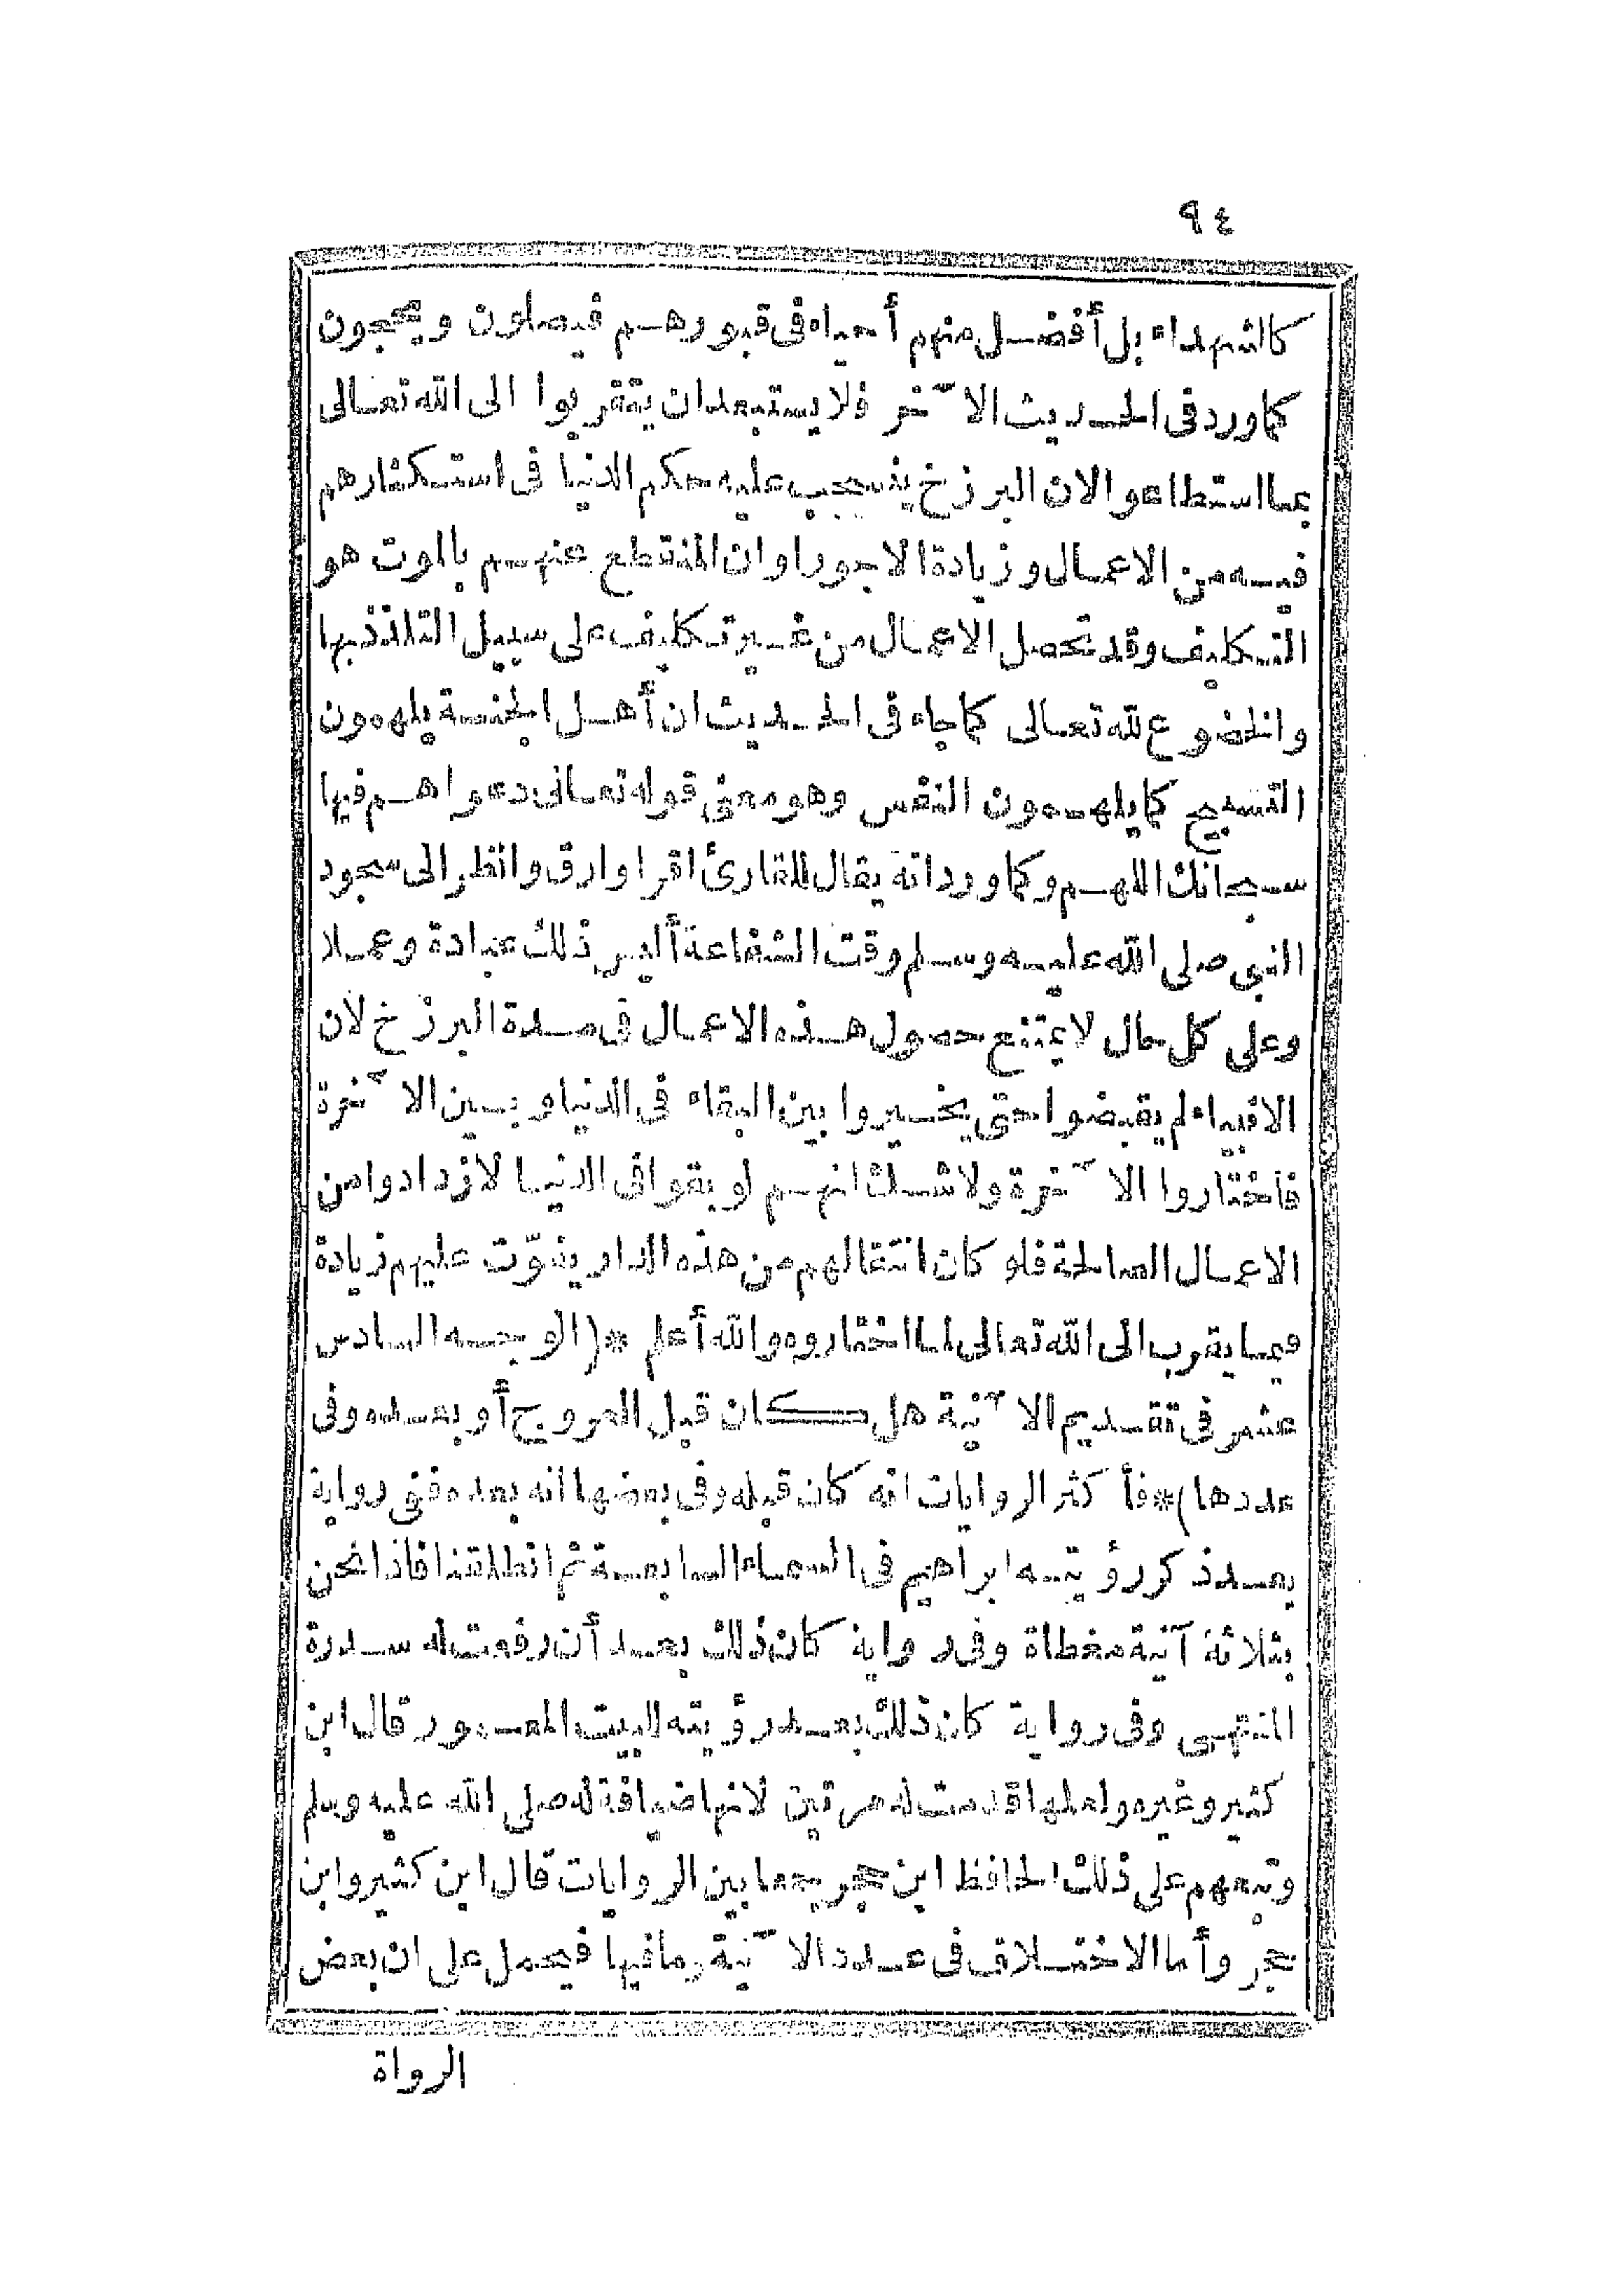 ٩٤
كالشهداء بل أفضل منهم أحياء فى قبورهم فيصلون ويحجون
كما ورد فى الحديث الآخر فلا يستبعد ان يتقربوا الى الله تعالى
بما استطاعوا لان البرزخ ينسحب عليه حكم الدنيا فى استكثارهم
فيه من الاعمال وزيادة الاجور او ان المنقطع عنهم بالموت هو
التكليف وقد تحصل الاعمال من غير تكليف على سبيل التلذذ بها
والخضوع لله تعالى كما جاء فى الحديث ان أهل الجنة يلهمون
التسبيح كما يلهمون النفس وهو معنى قوله تعالى دعواهم فيها
سبحانك اللهم وكما ورد انه يقال للقارئ اقرا وارق وانظر الى سجود
النبى صلى الله عليه وسلم وقت الشفاعة أليس ذلك عبادة وعملا
وعلى كل حال لا يمتنع حصول هذه الاعمال فى مدة البرزخ لان
الانبياء لم يقبضوا حتى يخيروا بين البقاء فى الدنيا وبين الآخرة
فاختاروا الآخرة ولا شك انهم لو بقوا فى الدنيا لازدادوا من
الاعمال الصالحة فلو كان انتقالهم من هذه الدار يفوّت عليهم زيادة
فيما يقرب الى الله تعالى لما اختاروه والله أعلم *(الوجه السادس
عشر فى تقديم الآنية هل كان قبل العروج أو بعده وفى
عددها)* فأكثر الروايات انه كان قبله وفى بعضها انه بعده ففى رواية
بعد ذكر رؤيته ابراهيم فى السماء السابعة ثم انطلقنا فاذا نحن
بثلاثة آنية مغطاة وفى رواية كان ذلك بعد أن رفعت له سدرة
المنتهى وفى رواية كان ذلك بعد رؤيته للبيت المعمور قال ابن
كثير وغيره ولعلها قدمت له مرتين لانها ضيافة له صلى الله عليه وسلم
وتبعهم على ذلك الحافظ ابن حجر جمعا بين الروايات قال ابن كثير وابن
حجر وأما الاختلاف فى عدد الآنية وما فيها فيحمل على ان بعض
الرواة